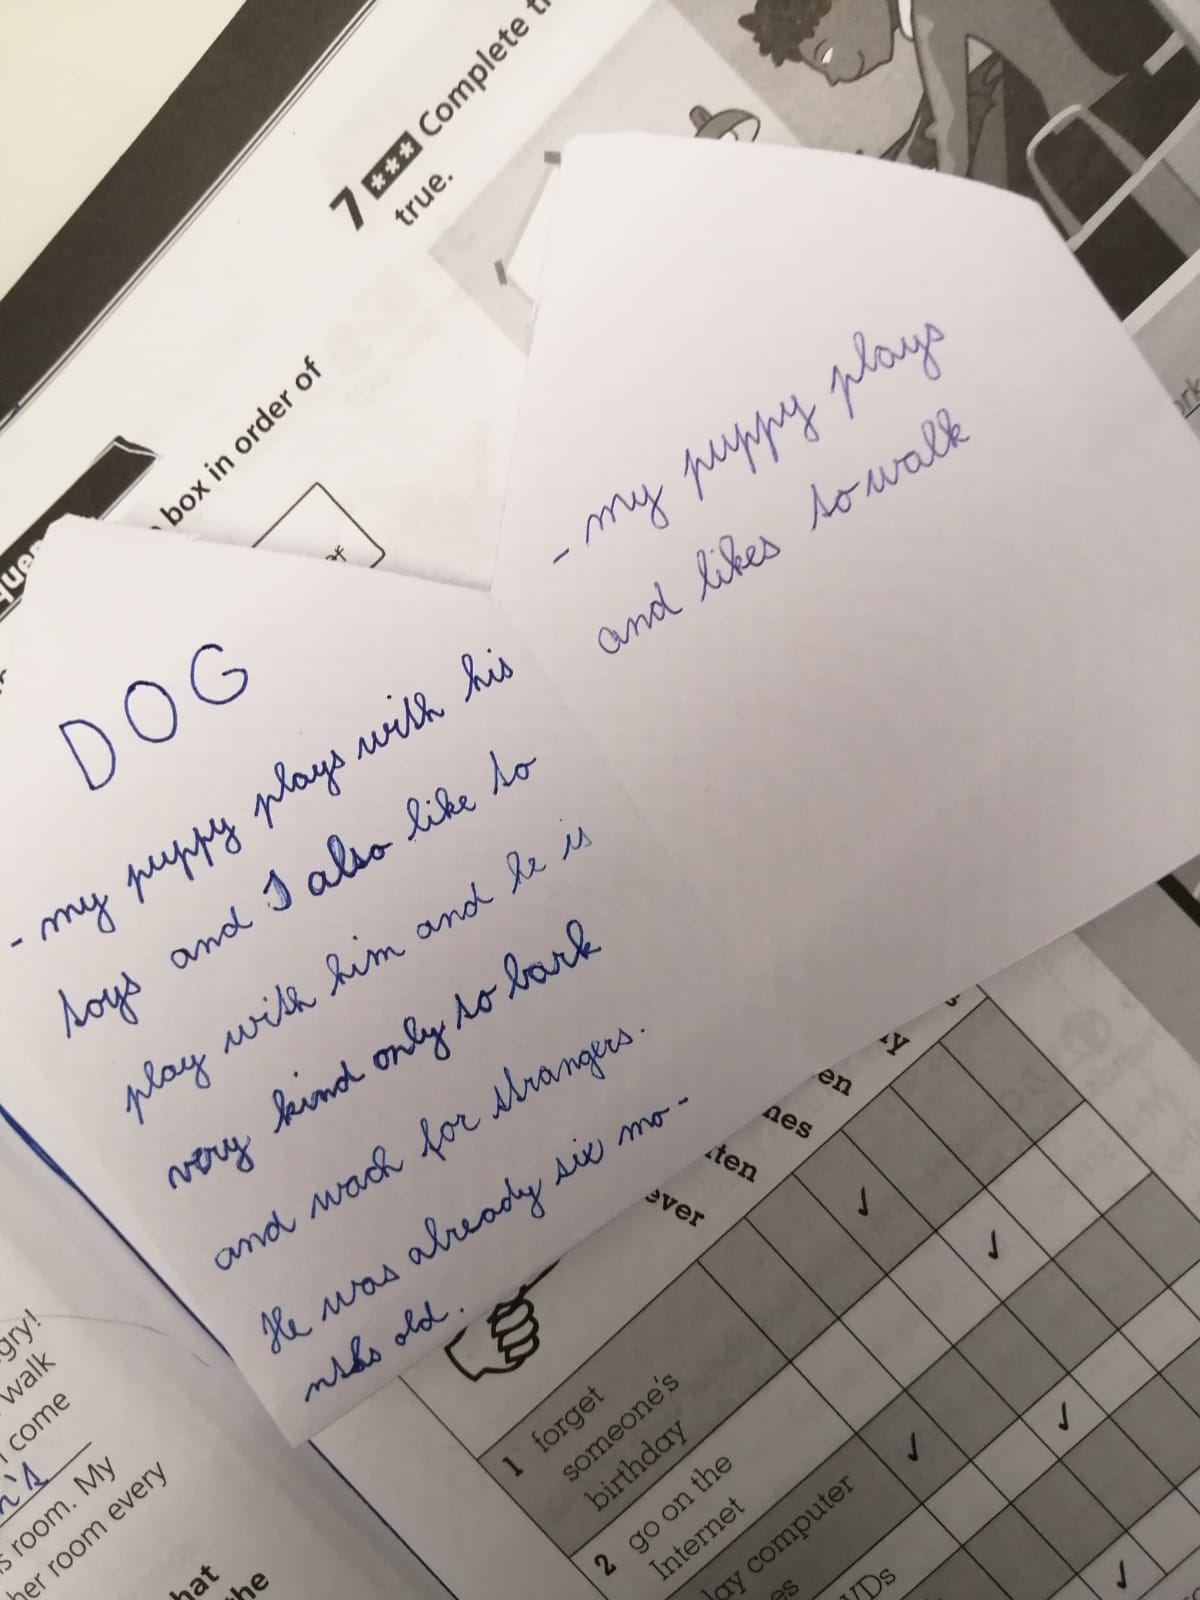 7 *** Complete t
true.
box in order of
- my puppy plays
and likes to walk
DOG
- my puppy plays with his
toys and I also like to
play with him and he is
very kind only to bark
and wach for strangers.
He was already six mo-
nths old.
ry
en
nes
ten
ever
1 forget
someone's
birthday
2 go on the
Internet
lay computer
es
VDs
gry!
walk
I come
n's
s room. My
her room every
hat
the